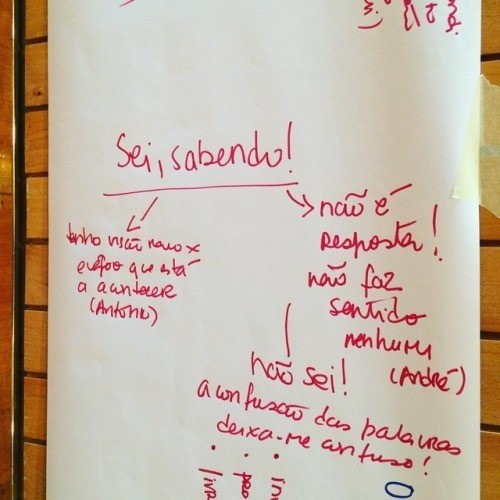 Sei, sabendo!
tenho visão
e vejo que está
a acontecer
(António)
não é
resposta!
não faz
sentido
nenhum
(André)
não sei!
a confusão das palavras
deixa-me confuso!